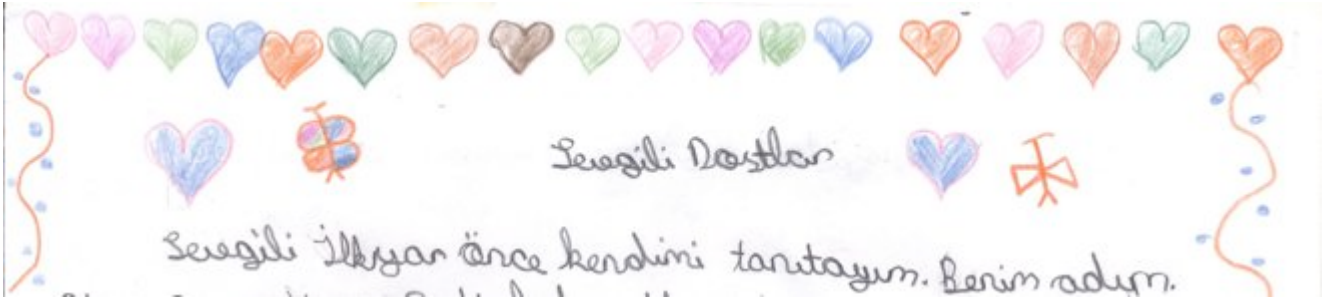 Sevgili Dostlar
Sevgili İlkyar önce kendimi tanıtayım. Benim adım.